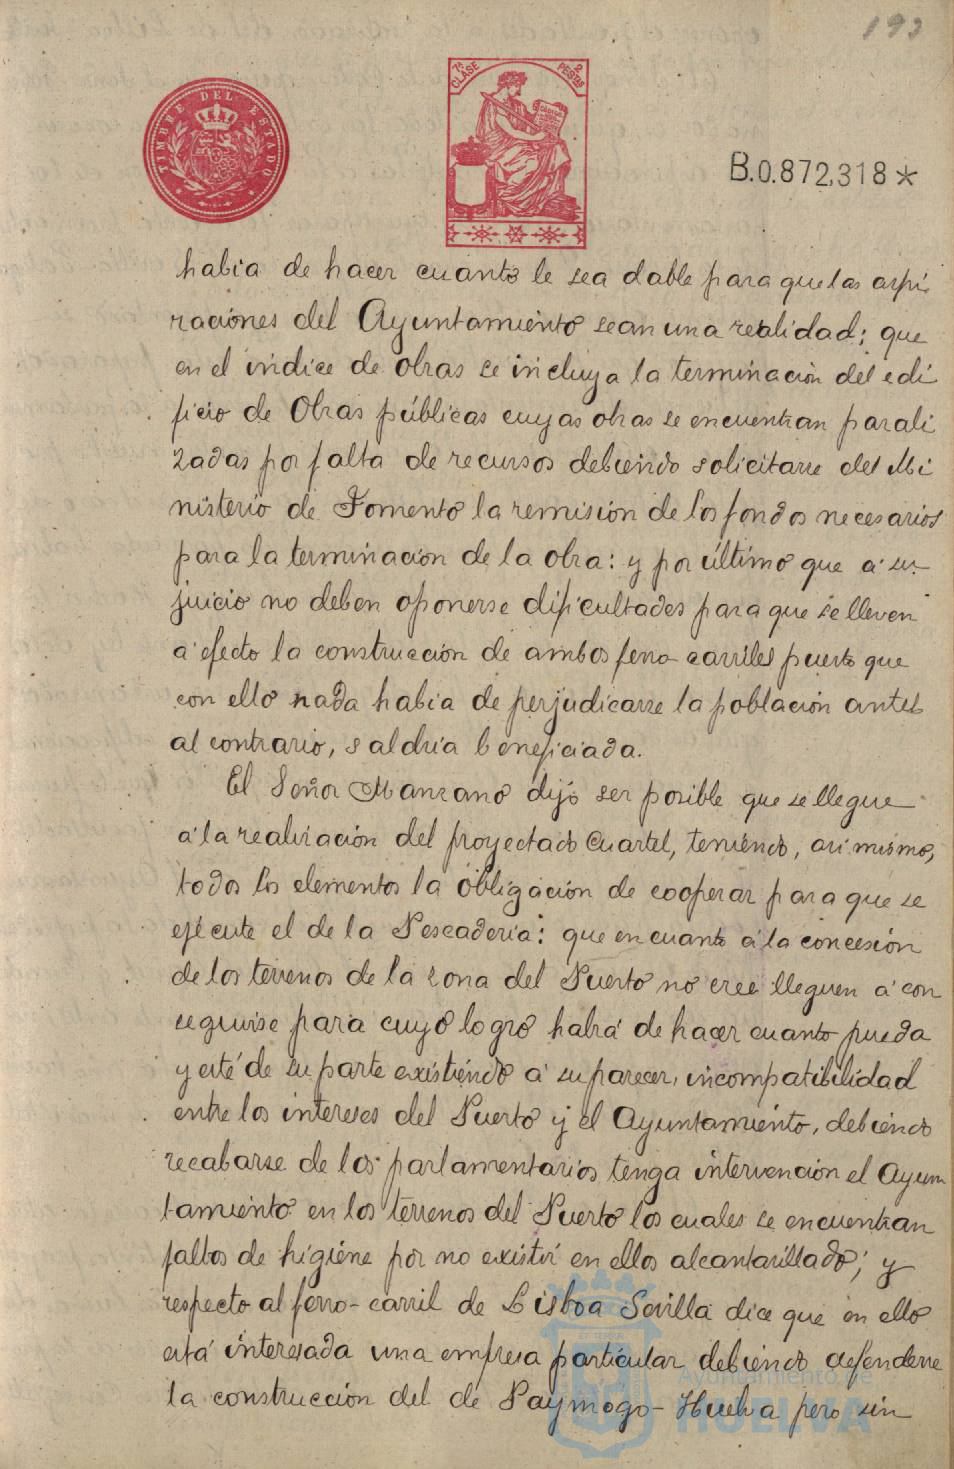 193
TIMBRE DEL ESTADO
7ª CLASE 2 PESETAS
B.0.872,318*
habia de hacer cuanto le sea dable para que las aspi
raciones del Ayuntamiento sean una realidad; que
en el indice de obras se incluya la terminación del edi
ficio de Obras públicas cuyas obras se encuentran parali
zadas por falta de recursos debiendo solicitarse del Mi
nisterio de Fomento la remisión de los fondos necesarios
para la terminación de la obra: y por último que á su
juicio no deben oponerse dificultades para que se lleven
á efecto la construcción de ambos ferro-carriles puesto que
con ello nada habia de perjudicarse la población antes
al contrario, saldria beneficiada.
El Señor Manzano dijo ser posible que se llegue
á la realización del proyectado Cuartel, teniendo, asi mismo,
todos los elementos la obligación de cooperar para que se
ejecute el de la Pescaderia: que en cuanto á la concesión
de los terrenos de la zona del Puerto no cree lleguen á con
seguirse para cuyo logro habrá de hacer cuanto pueda
y esté de su parte existiendo á su parecer, incompatibilidad
entre los intereses del Puerto y el Ayuntamiento, debiendo
recabarse de los parlamentarios tenga intervención el Ayun
tamiento en los terrenos del Puerto los cuales se encuentran
faltos de higiene por no existir en ellos alcantarillado; y
respecto al ferro-carril de Lisboa Sevilla dice que en ello
está interesada una empresa particular debiendo defenderse
la construcción del de Paymogo-Huelva pero sin
Ayuntamiento de
HUELVA